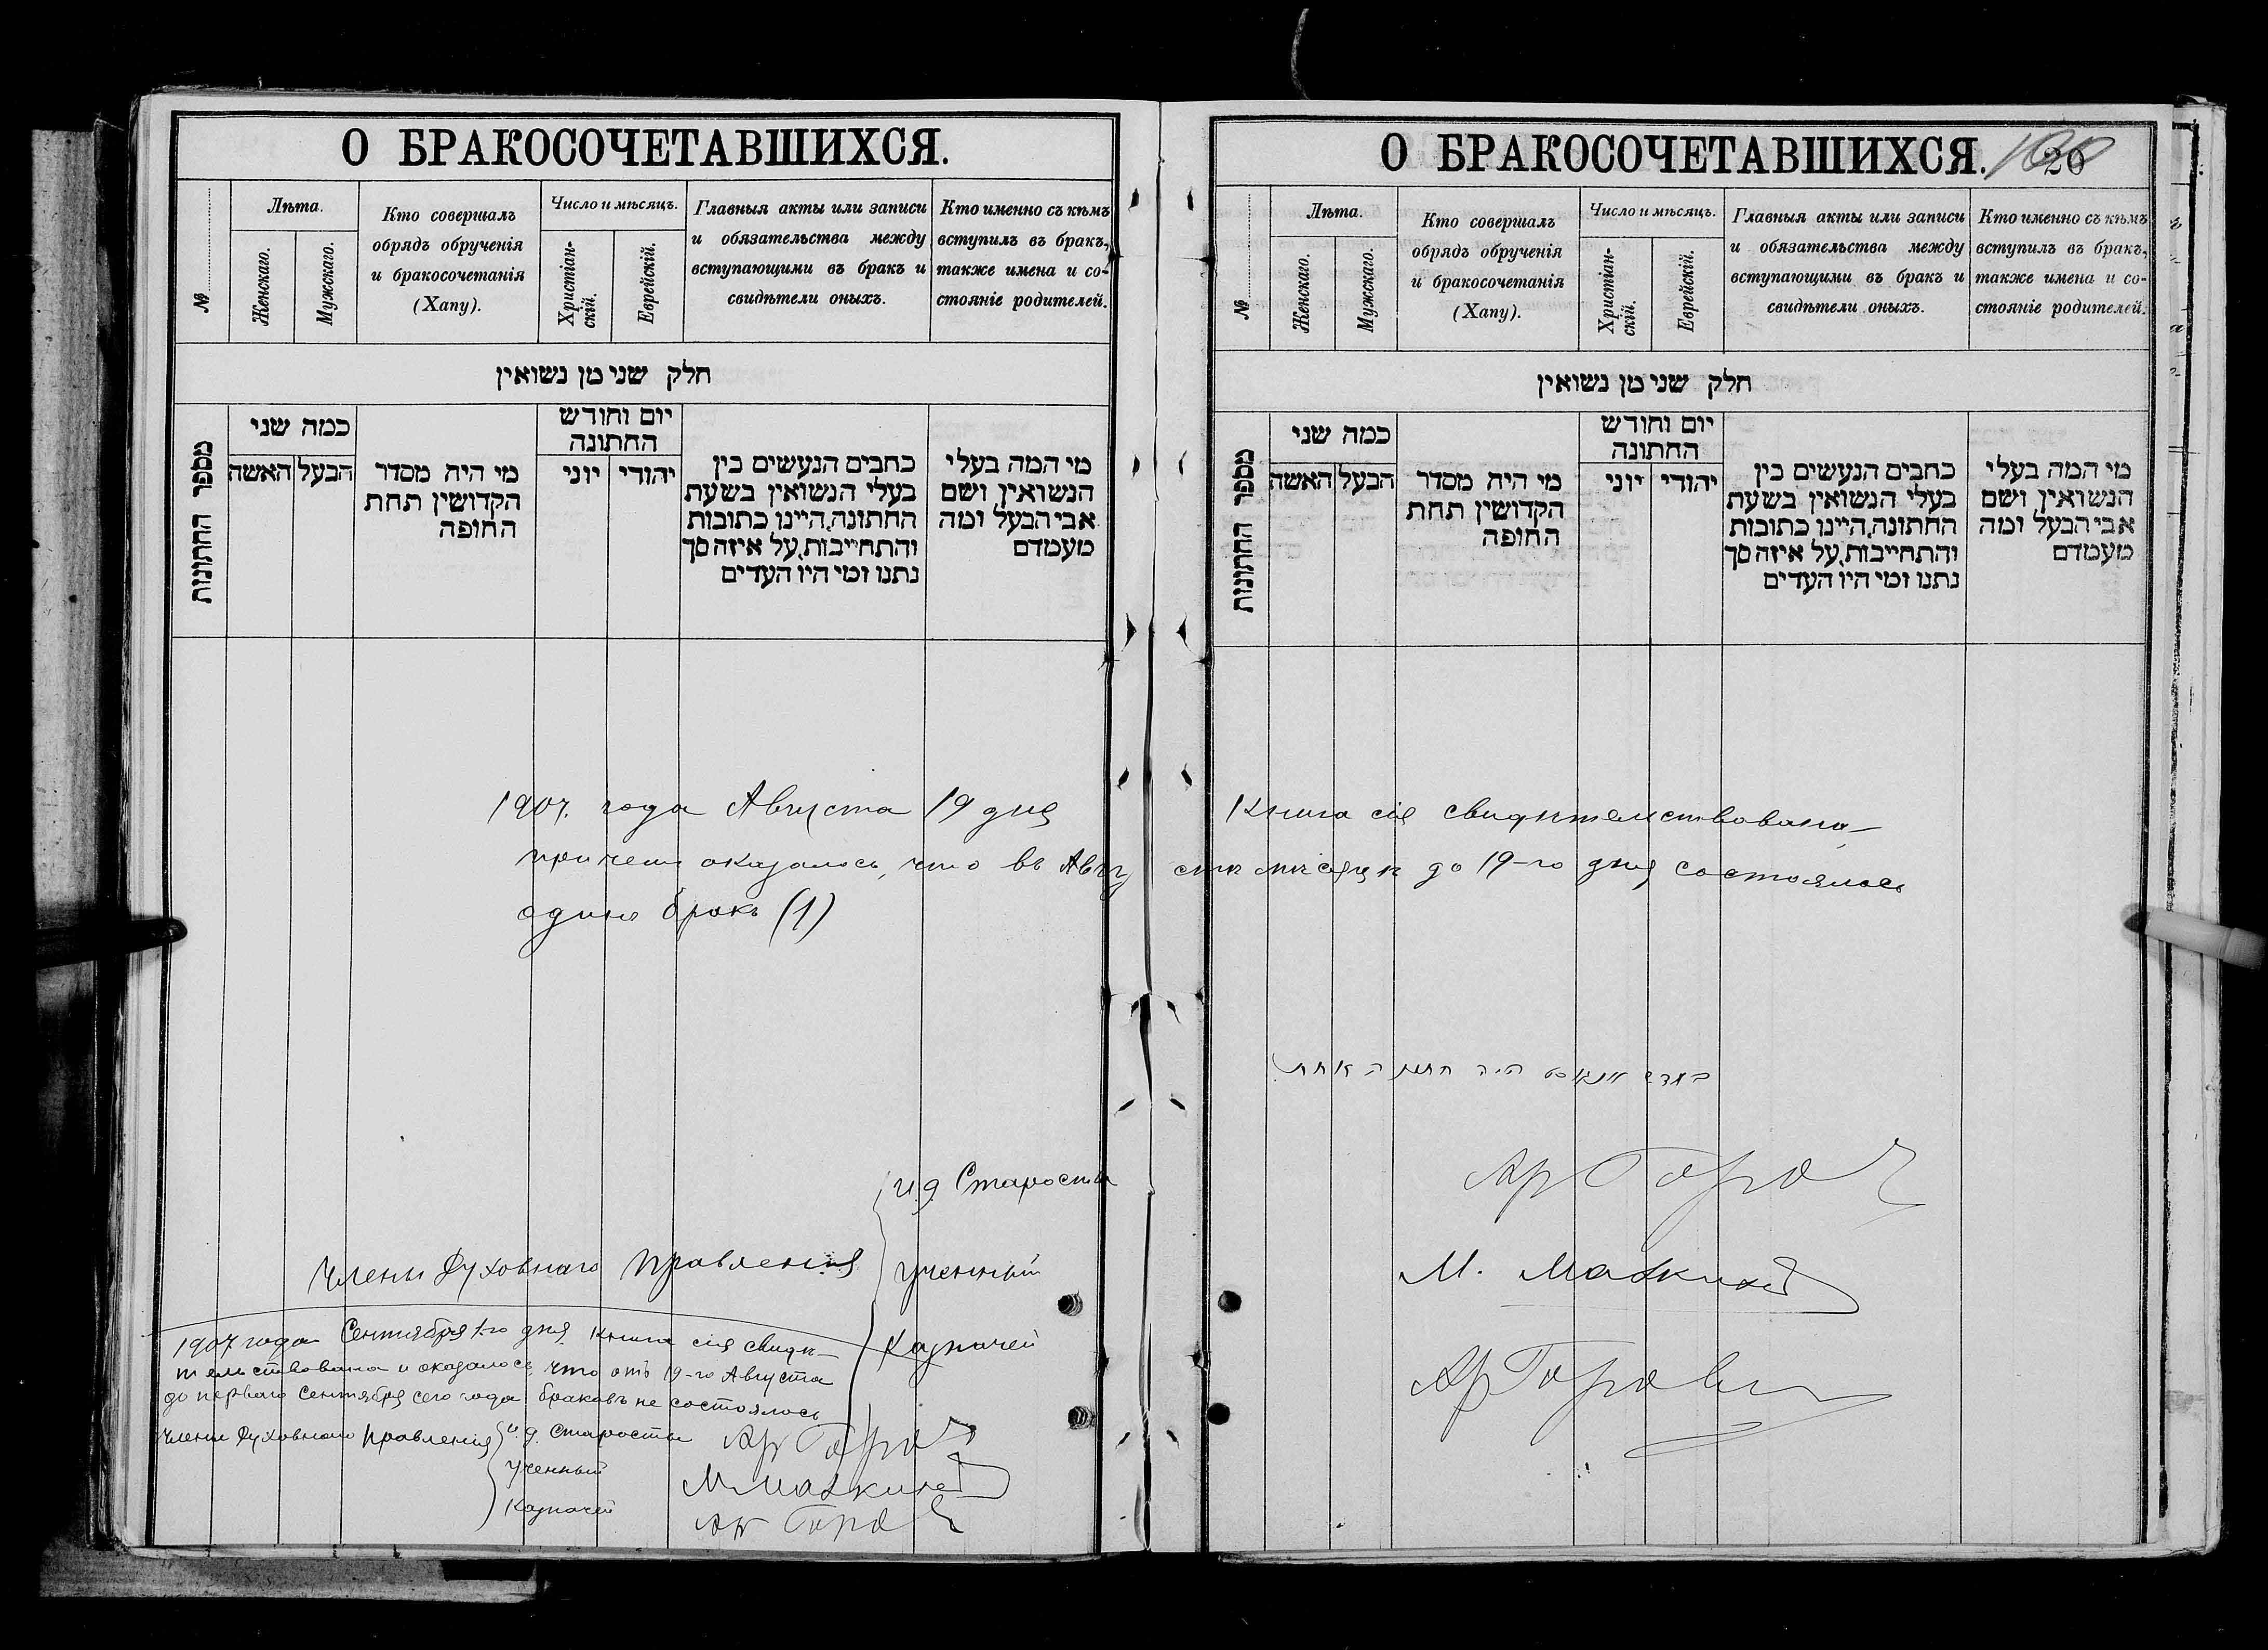 О БРАКОСОЧЕТАВШИХСЯ.
№
Лѣта.
Женскаго.
Мужскаго.
Кто совершалъ
обрядъ обрученія
и бракосочетанія
(Хапу).
Число и мѣсяцъ.
Христіан-
скій.
Еврейскій.
Главныя акты или записи
и обязательства между
вступающими въ бракъ и
свидѣтели оныхъ.
Кто именно съ кѣмъ
вступилъ въ бракъ,
также имена и со-
стояніе родителей.
חלק שני מן נשואין
מספר החתונות
כמה שני
האשה
הבעל
מי היה מסדר
הקדושין תחת
החופה
יום וחודש
החתונה
יוני
יהודי
כתבים הנעשים בין
בעלי הנשואין בשעת
החתונה, היינו כתובות
והתחייבות, על איזה סך
נתנו ומי היו העדים
מי המה בעלי
הנשואין ושם
אבי הבעל ומה
מעמדם
О БРАКОСОЧЕТАВШИХСЯ.
20
№
Лѣта.
Женскаго.
Мужскаго.
Кто совершалъ
обрядъ обрученія
и бракосочетанія
(Хапу).
Число и мѣсяцъ.
Христіан-
скій.
Еврейскій.
Главныя акты или записи
и обязательства между
вступающими въ бракъ и
свидѣтели оныхъ.
Кто именно съ кѣмъ
вступилъ въ бракъ,
также имена и со-
стояніе родителей.
חלק שני מן נשואין
מספר החתונות
כמה שני
האשה
הבעל
מי היה מסדר
הקדושין תחת
החופה
יום וחודש
החתונה
יוני
יהודי
כתבים הנעשים בין
בעלי הנשואין בשעת
החתונה, היינו כתובות
והתחייבות, על איזה סך
נתנו ומי היו העדים
מי המה בעלי
הנשואין ושם
אבי הבעל ומה
מעמדם
1907. года Августа 19 дня Книга сія свидѣтельствована
причемъ оказалось, что въ Августѣ мѣсяцѣ до 19-го дня состоялось
одинъ бракъ (1)
היה חתונה אחת
Члены Духовнаго Правленія
и.д. Старосты
Ученный
Казначей
М.
1907 года Сентября 1-го дня Книга сія свидѣ-
тельствована и оказалось, что отъ 19-го Августа
до перваго Сентября сего года браковъ не состоялось
Члены Духовнаго Правленія
и.д. Старосты
Ученный
Казначей